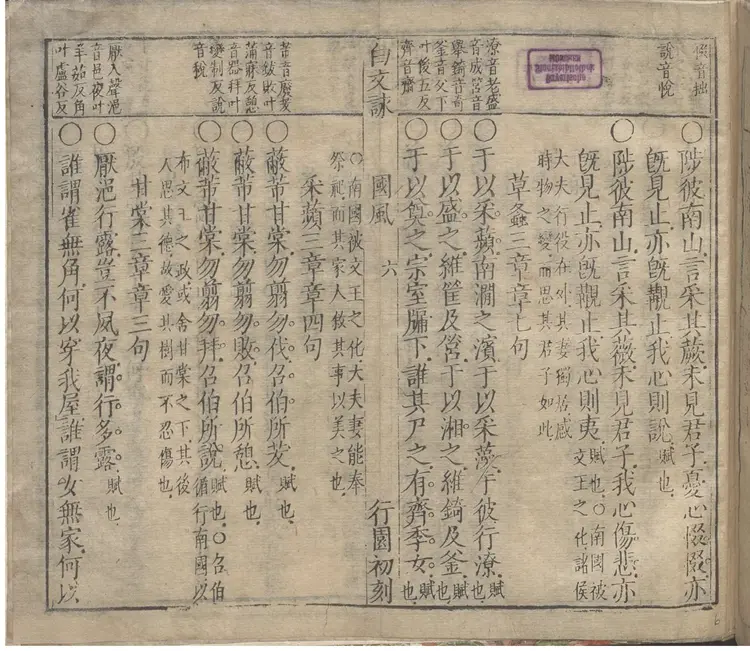 惙音拙
說音悅
○陟彼南山言采其蕨未見君子憂心惙惙亦
旣見止亦旣覯止我心則說賦也
○陟彼南山言采其薇未見君子我心傷悲亦
旣見止亦旣覯止我心則夷賦也○南國被
文王之化諸侯
大夫行役在外其妻獨居感
時物之變而思其君子如此
草蟲三章章七句
潦音老盛
音成筥音
舉錡音奇
釜音父下
叶後五反
齊音齋
○于以采蘋南澗之濱于以采藻于彼行潦賦也
○于以盛之維筐及筥于以湘之維錡及釜賦也
○于以奠之宗室牖下誰其尸之有齊季女賦也
白文詠 國風 六 行園初刻
○南國被文王之化大夫妻能奉
祭祀而其家人敘其事以美之也
采蘋三章章四句
芾音廢茇
音跋敗叶
蒲寐反憩
音器拜叶
變制反說
音稅
○蔽芾甘棠勿翦勿伐召伯所茇賦也
○蔽芾甘棠勿翦勿敗召伯所憩賦也
○蔽芾甘棠勿翦勿拜召伯所說賦也○召伯
循行南國以
布文王之政或舍甘棠之下其後
人思其德故愛其樹而不忍傷也
甘棠三章章三句
厭入聲浥
音邑夜叶
羊茹反角
叶盧谷反
○厭浥行露豈不夙夜謂行多露賦也
○誰謂雀無角何以穿我屋誰謂女無家何以